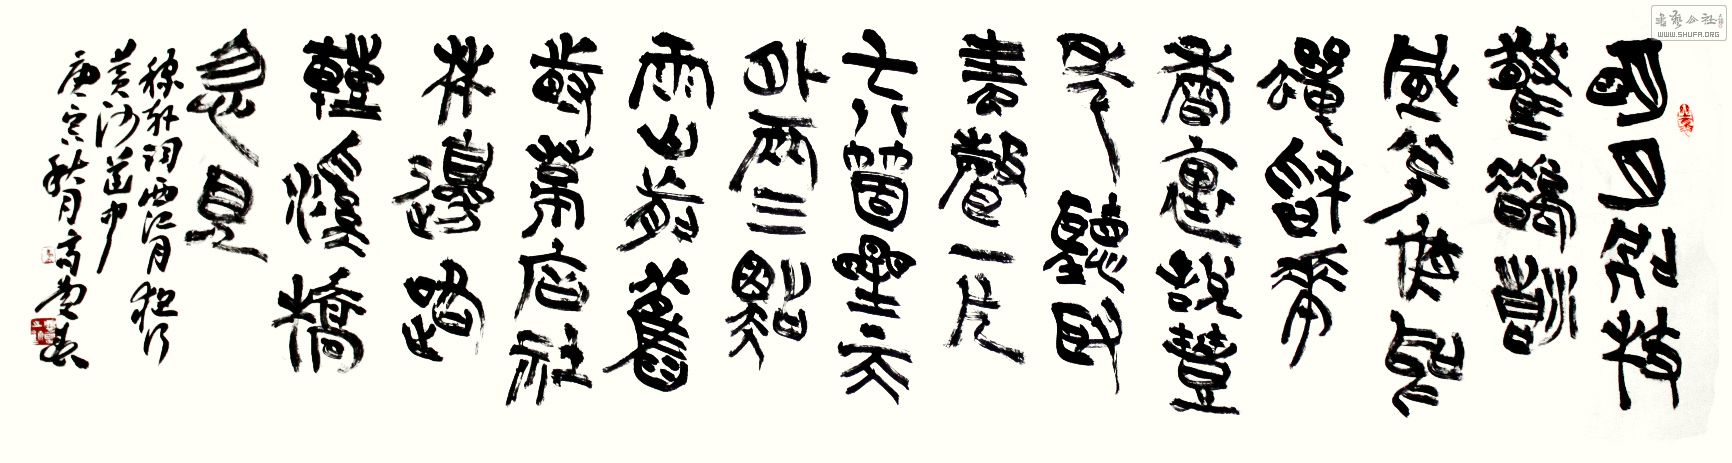 明月別枝
驚鵲清
風半夜鳴
蟬稻花
香裏說豐
年聽取
蛙聲一片
七八箇星天
外兩三點
雨山前舊
時茅店社
林邊路
轉溪橋
忽見
稼軒詞西江月夜行
黄沙道中
庚寅秋月
书艺公社
WWW.SHUFA.ORG